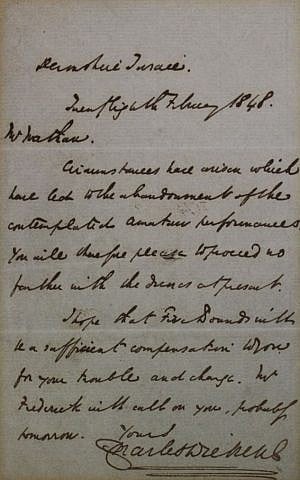 Devonshire Terrace.
Twenty eighth February 1848.
Mr Nathan.
Circumstances have arisen which
have led to the abandonment of the
contemplated Amateur performances.
You will therefore please to proceed no
farther with the dresses at present.
I hope that Five Pounds will
be a sufficient compensation to you
for your trouble and charge. Mr
Frederick will call on you, probably
tomorrow. Yours
Charles Dickens